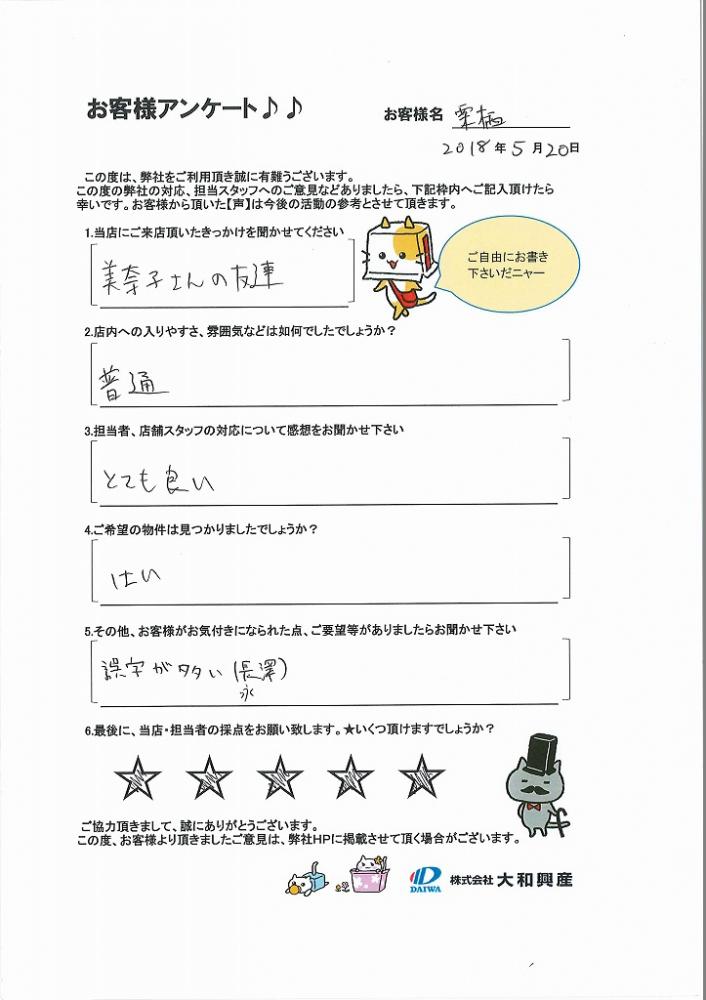 お客様アンケート♪♪
お客様名 栗栖
2018年5月20日
この度は、弊社をご利用頂き誠に有難うございます。
この度の弊社の対応、担当スタッフへのご意見などありましたら、下記枠内へご記入頂けたら
幸いです。お客様から頂いた【声】は今後の活動の参考とさせて頂きます。
1.当店にご来店頂いたきっかけを聞かせてください
美奈子さんの友達
ご自由にお書き
下さいだニャー
2.店内への入りやすさ、雰囲気などは如何でしたでしょうか?
普通
3.担当者、店舗スタッフの対応について感想をお聞かせ下さい
とても良い
4.ご希望の物件は見つかりましたでしょうか?
はい
5.その他、お客様がお気付きになられた点、ご要望等がありましたらお聞かせ下さい
誤字が多い(長澤)
永
6.最後に、当店・担当者の採点をお願い致します。★いくつ頂けますでしょうか?
ご協力頂きまして、誠にありがとうございます。
この度、お客様より頂きましたご意見は、弊社HPに掲載させて頂く場合がございます。
DAIWA 株式会社 大和興産